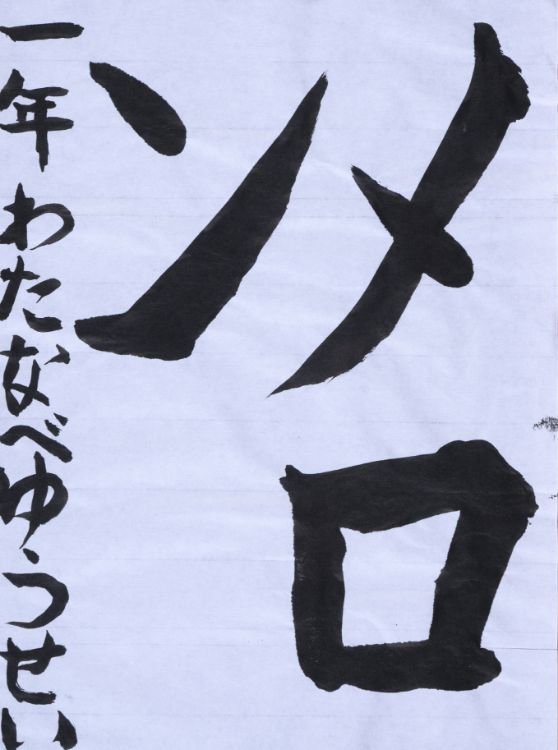 メロ
ン
一年 わたなべゆうせい